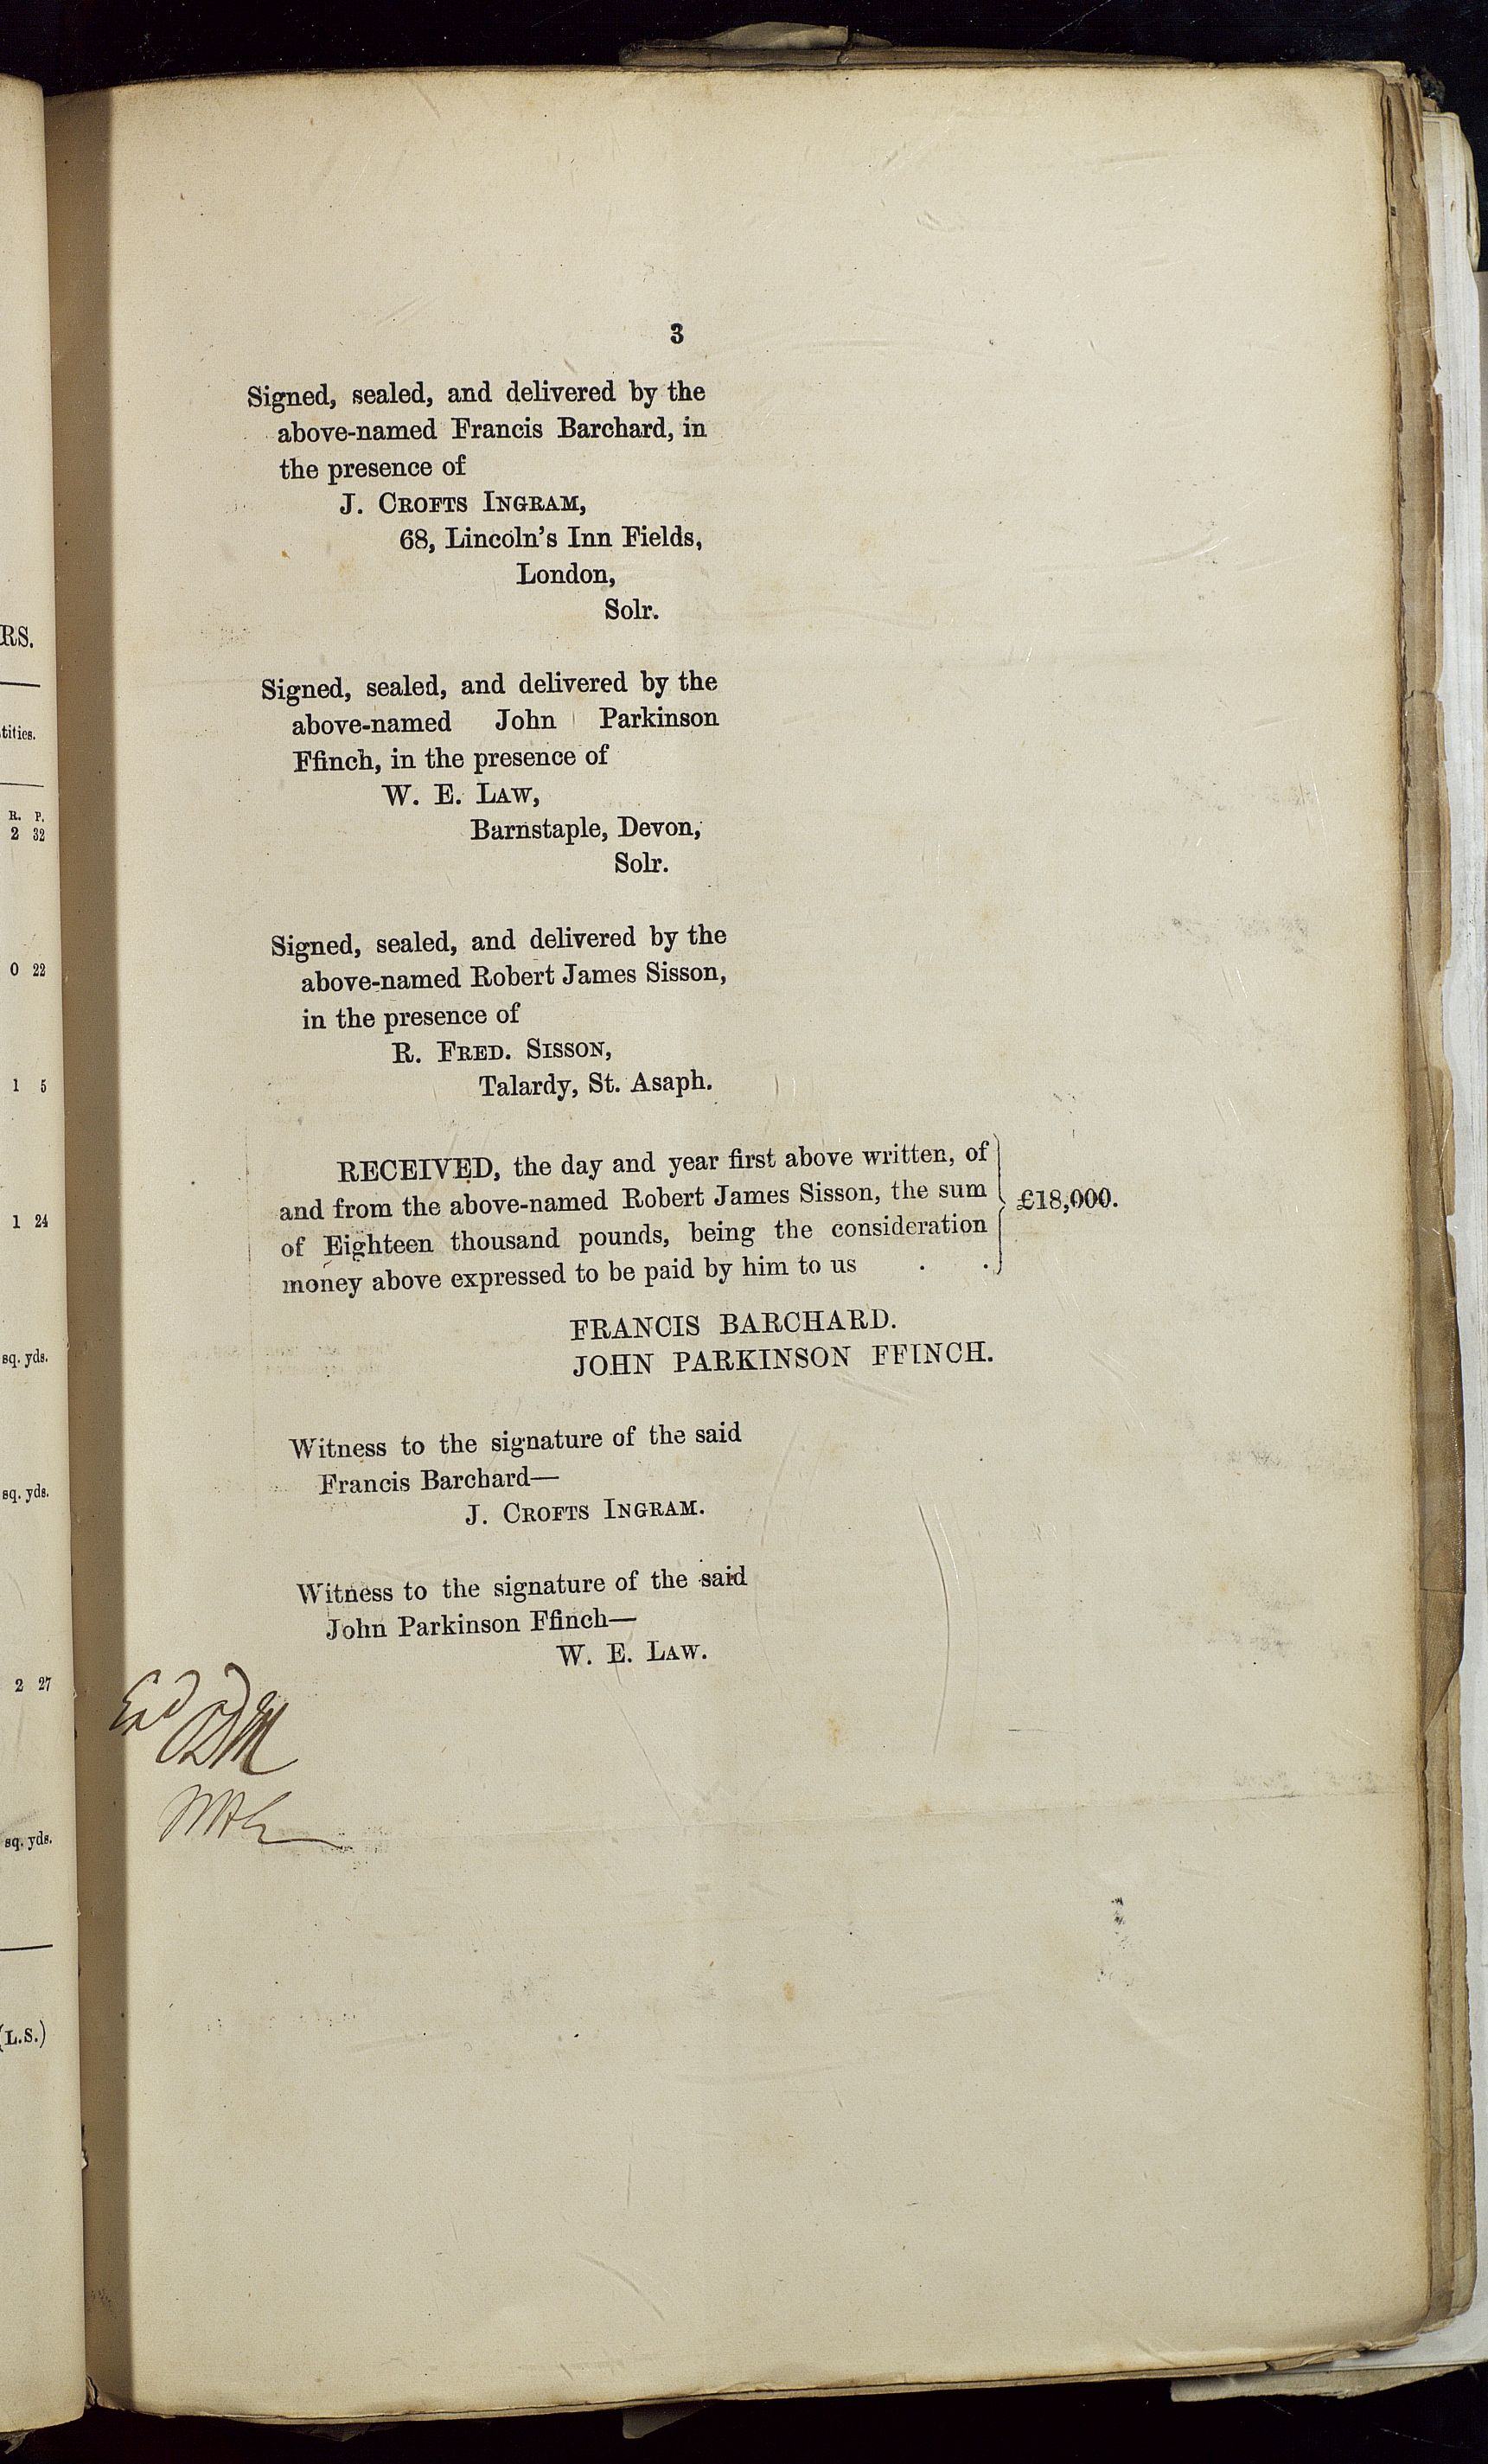 RS.
tities.
R. P.
2 32
0 22
1 5
1 24
sq. yds.
sq. yds.
2 27
sq. yds.
(L.S.)
3
Signed, sealed, and delivered by the
above-named Francis Barchard, in
the presence of
J. CROFTS INGRAM,
68, Lincoln's Inn Fields,
London,
Solr.
Signed, sealed, and delivered by the
above-named John Parkinson
Ffinch, in the presence of
W. E. LAW,
Barnstaple, Devon,
Solr.
Signed, sealed, and delivered by the
above-named Robert James Sisson,
in the presence of
R. FRED. SISSON,
Talardy, St. Asaph.
RECEIVED, the day and year first above written, of
and from the above-named Robert James Sisson, the sum
of Eighteen thousand pounds, being the consideration
money above expressed to be paid by him to us . .
£18,000.
FRANCIS BARCHARD.
JOHN PARKINSON FFINCH.
Witness to the signature of the said
Francis Barchard—
J. CROFTS INGRAM.
Witness to the signature of the said
John Parkinson Ffinch—
W. E. LAW.